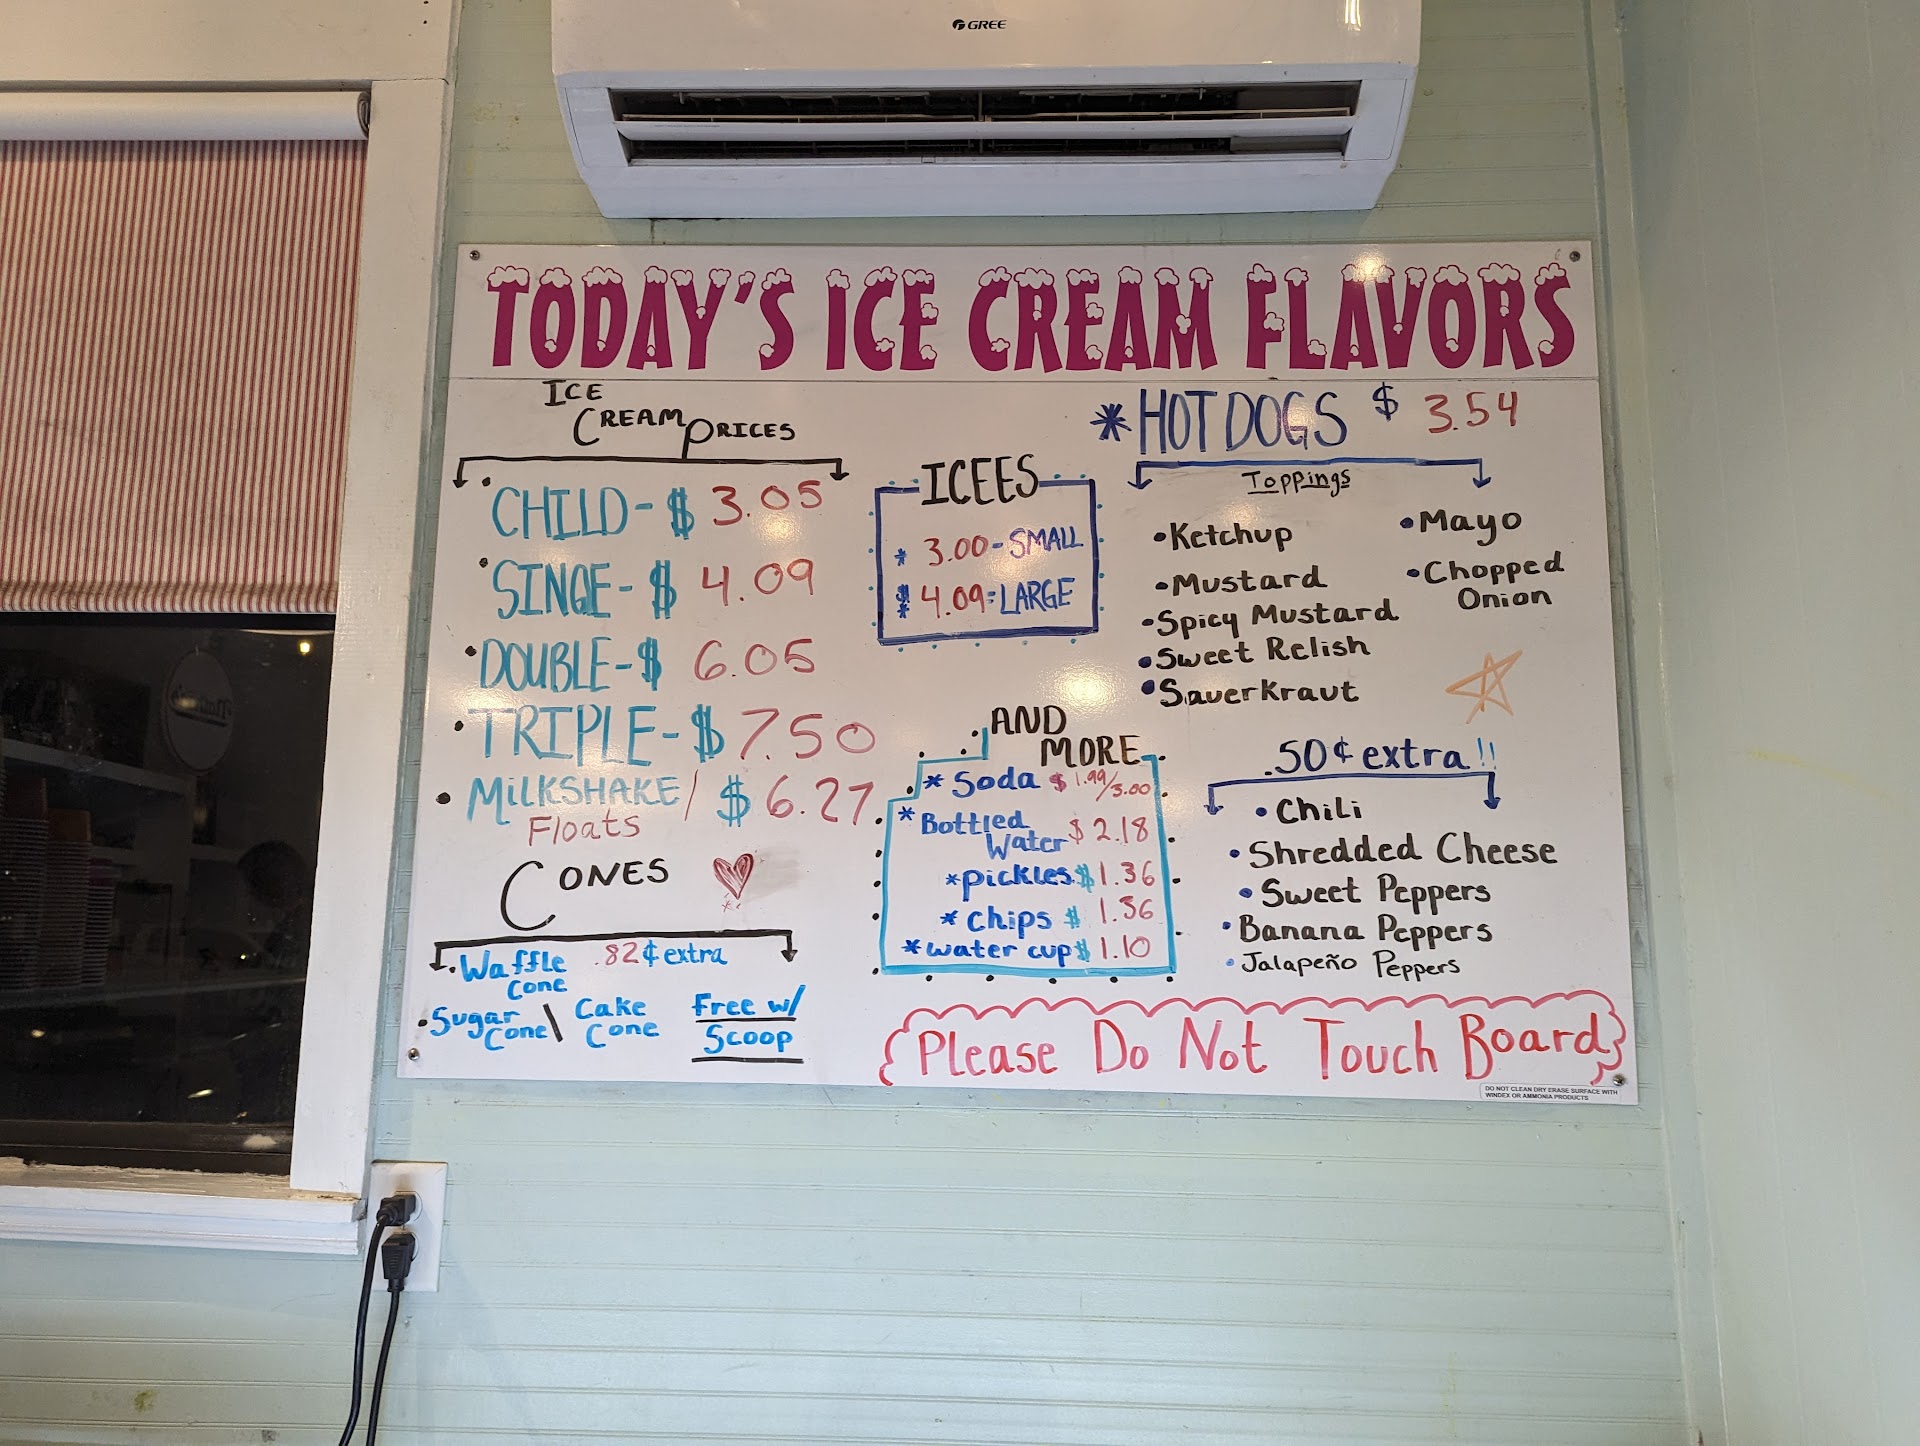 GREE
TODAY'S ICE CREAM FLAVORS
ICE
CREAM PRICES
• CHILD - $ 3.05
• SINGE - $ 4.09
• DOUBLE - $ 6.05
• TRIPLE - $ 7.50
• MiLKSHAKE / $ 6.27
Floats
CONES
• Waffle .82¢ extra
Cone
• Sugar \ Cake Free w/
Cone Cone Scoop
ICEES
* 3.00 - SMALL
$ 4.09 = LARGE
AND
MORE
* Soda $ 1.99/3.00
* Bottled
Water $ 2.18
* pickles $ 1.36
* chips $ 1.36
* water cup $ 1.10
* HOT DOGS $ 3.54
Toppings
• Ketchup
• Mustard
• Spicy Mustard
• Sweet Relish
• Sauerkraut
• Mayo
• Chopped
Onion
.50¢ extra!!
• Chili
• Shredded Cheese
• Sweet Peppers
• Banana Peppers
• Jalapeño Peppers
Please Do Not Touch Board
DO NOT CLEAN DRY ERASE SURFACE WITH
WINDEX OR AMMONIA PRODUCTS